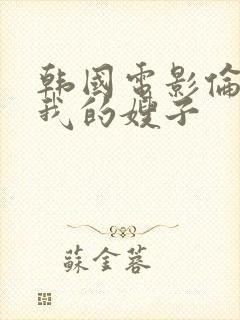 韩國電影倫
我的嫂子
蘇金蓉